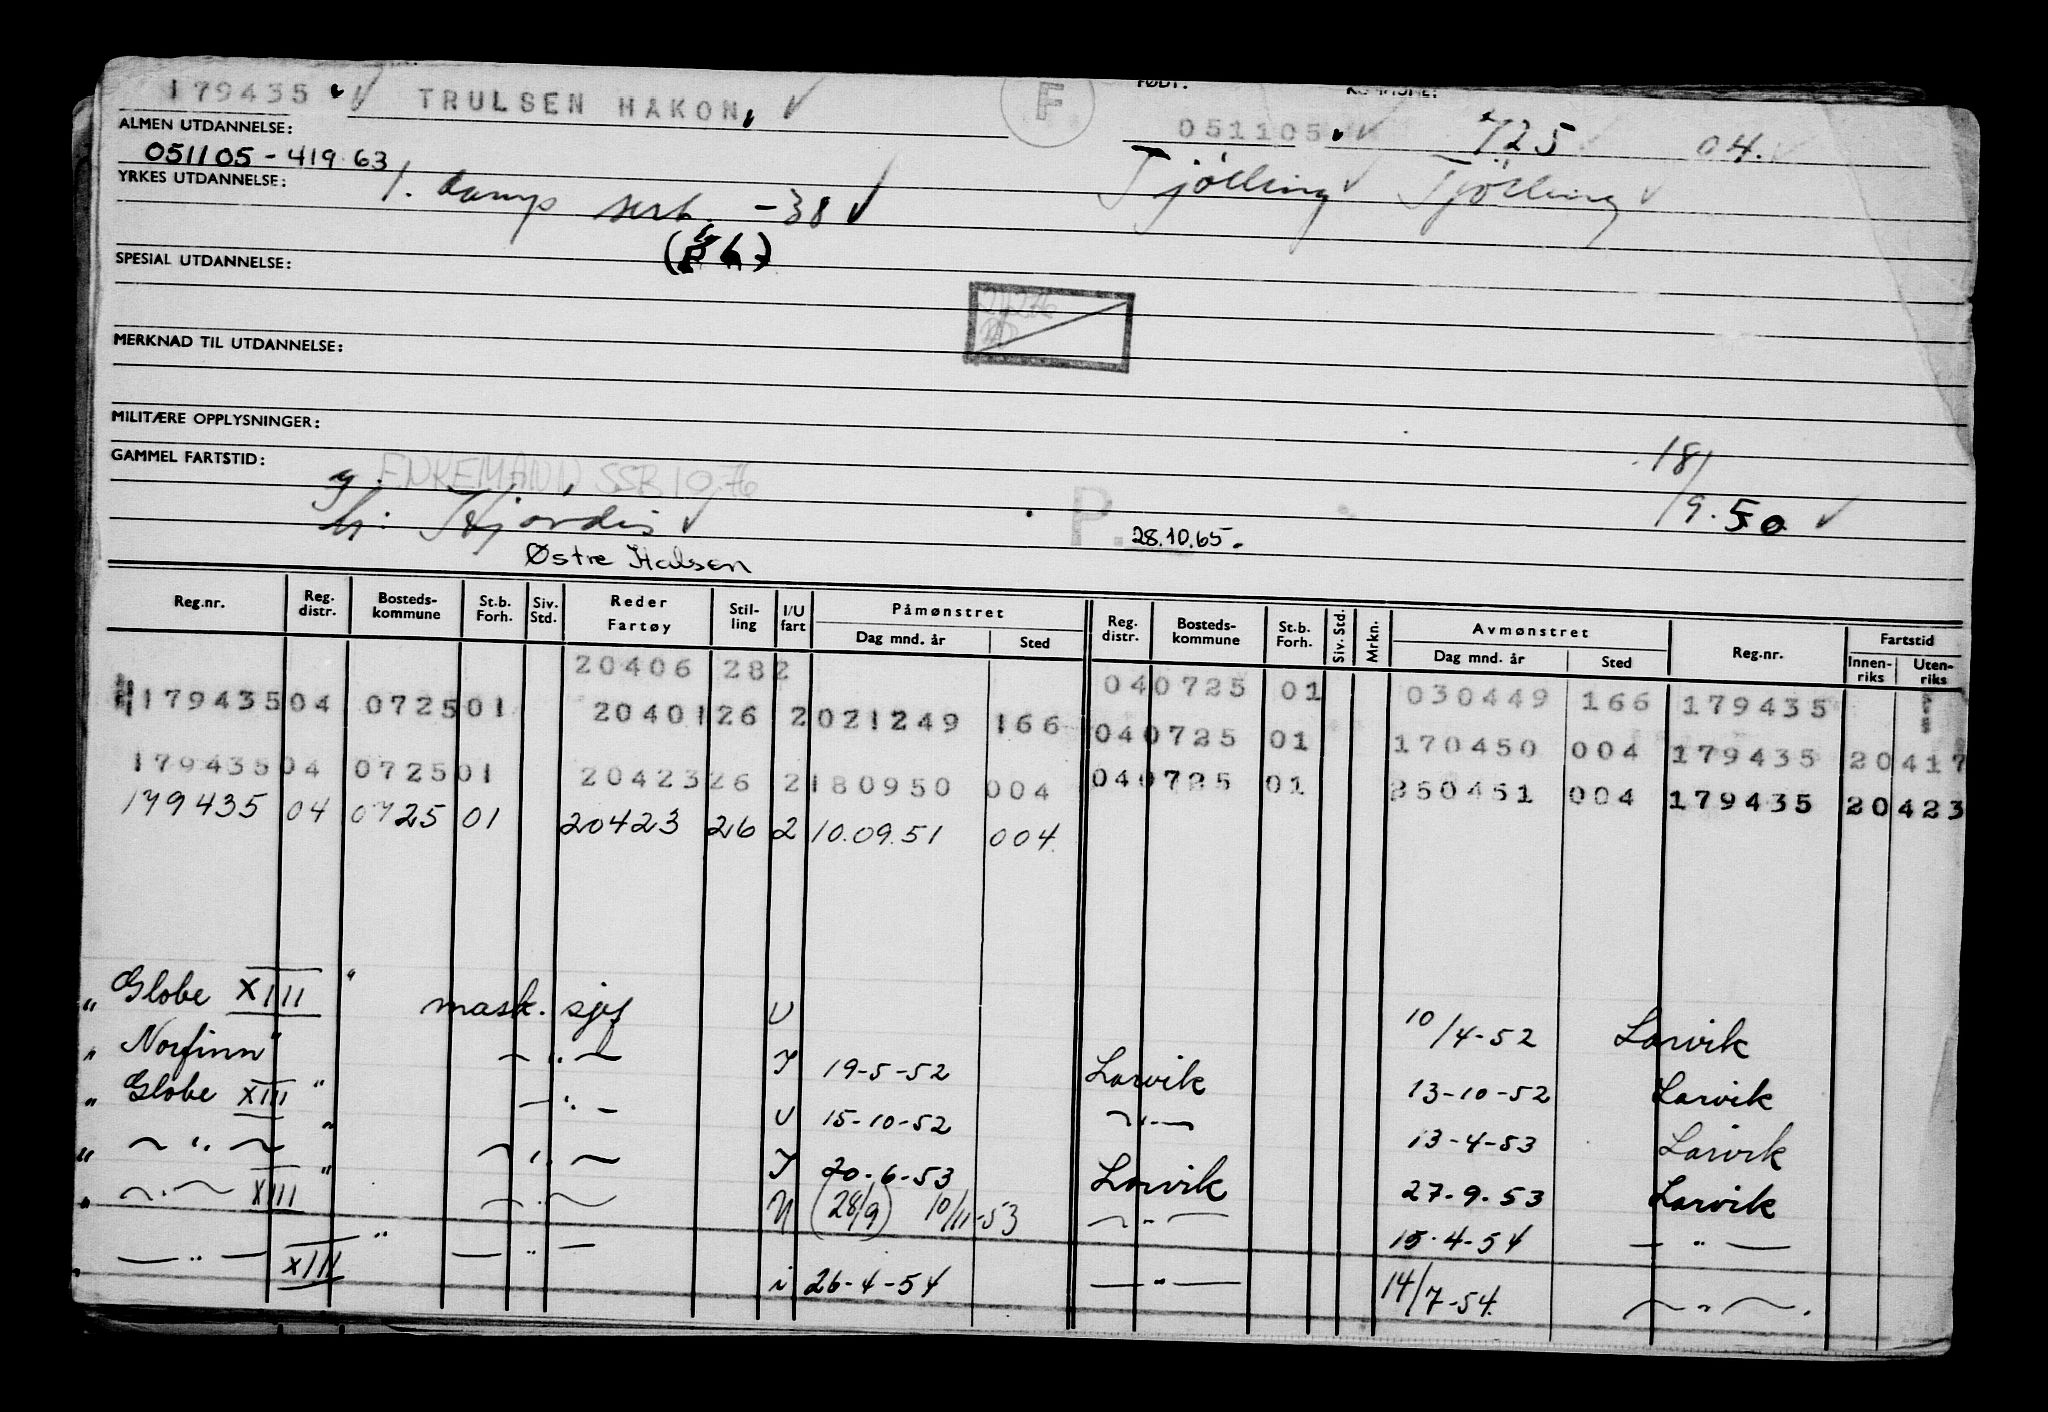 179435 TRULSEN HAKON F FØDT: KOMMUNE:
ALMEN UTDANNELSE: 051105 725 04.
051105-419 63
YRKES UTDANNELSE: 1. damp sert. -38 Tjölling Tjölling
SPESIAL UTDANNELSE:
MERKNAD TIL UTDANNELSE:
MILITÆRE OPPLYSNINGER:
GAMMEL FARTSTID: 18/9.50
ENKEMANN SSB 1976
h: Hjørdis P. 28.10.65.
Østre Halsen
Reg.nr. Reg. distr. Bosteds-kommune St.b. Forh. Siv. Std. Reder Fartøy Stil-ling I/U fart Påmønstret Dag mnd. år Sted Reg. distr. Bosteds-kommune St.b. Forh. Siv. Std. Mrkn. Avmønstret Dag mnd. år Sted Reg.nr. Fartstid Innen-riks Uten-riks
20406 282 040725 01 030449 166 179435
179435 04 0725 01 20401 26 2 021249 166 040725 01 170450 004 179435 20 417
179435 04 0725 01 20423 26 2 180950 004 040725 01 250451 004 179435 20 423
179435 04 0725 01 20423 26 2 10.09.51 004
" Globe XIII " mask. sjef U 10/4-52 Larvik
" Norfinn " — " — I 19-5-52 Larvik 13-10-52 Larvik
" Globe XIII " — " — U 15-10-52 — " — 13-4-53 Larvik
" — " — " — " — I 20-6-53 Larvik 27-9-53 Larvik
" — " — XIII " — " — U (28/9) 10/11-53 — " — 15-4-54 — " —
— " — XIII " — " — i 26-4-54 — " — 14/7-54. — " —.